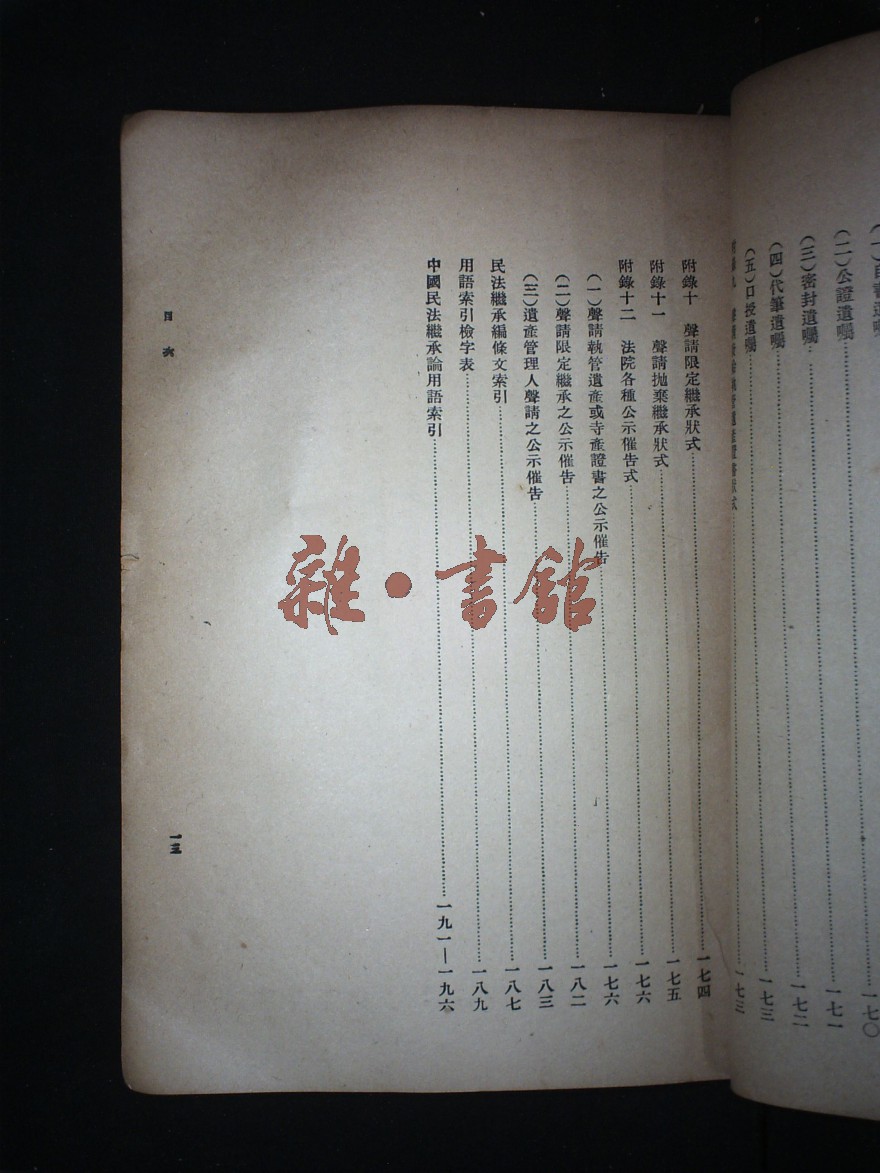 (二)公證遺囑……一七一
(三)密封遺囑……一七二
(四)代筆遺囑……一七三
(五)口授遺囑
附錄十 聲請限定繼承狀式……一七四
附錄十一 聲請拋棄繼承狀式……一七五
附錄十二 法院各種公示催告式……一七六
(一)聲請執管遺產或寺產證書之公示催告……一七六
(二)聲請限定繼承之公示催告……一八二
(三)遺產管理人聲請之公示催告……一八三
民法繼承編條文索引……一八七
用語索引檢字表……一八九
中國民法繼承論用語索引……一九一—一九六
目次
一三
雜·書館